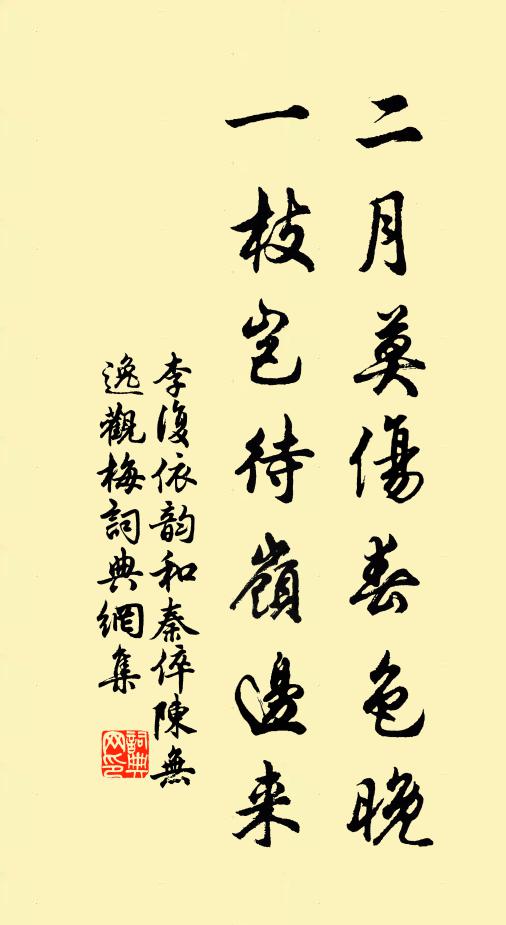 二月莫傷春色晚
一枝豈待嶺邊来
李復依韵和秦倅陳無
逸觀梅詞典網集
詞典网印